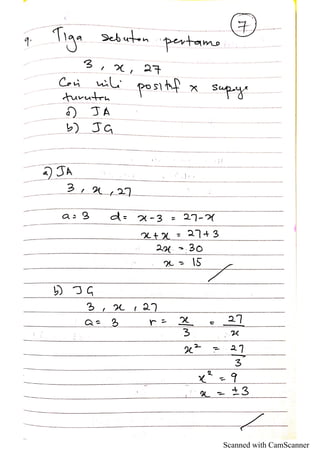 7
9. Tiga sebutan pertama
3, x, 27
Cari nilai positif x supaya
turutan
a) JA
b) JG
a) JA
3, x, 27
a = 3 d = x-3 = 27-x
x+x = 27+3
2x = 30
x = 15
b) JG
3, x, 27
a = 3 r = x/3 = 27/x
x² = 27/3
x² = 9
x = ±3
Scanned with CamScanner